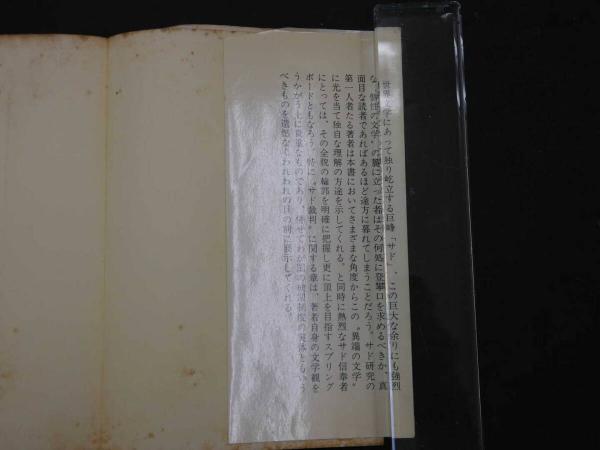 世界文学にあって独り屹立する巨峰「サド」、この巨大な余りにも強烈
な〝個性の文学〟の麓に立った者はその何処に登攀口を求めるべきか、真
面目な読者であればあるほど途方に暮れてしまうことだろう。サド研究の
第一人者たる著者は本書においてさまざまな角度からこの〝異端の文学〟
に光を当て独自な理解の方途を示してくれる。と同時に熱烈なサド信奉者
にとっては、その全貌の輪郭を明確に把握し更に頂上を目指すスプリング
ボードともなろう。特に〝サド裁判〟に関する章は、著者自身の文学観を
うかがう上に貴重なものであり、併せてわが国の検閲制度の実体ともいう
べきものを遺憾なくわれわれの目の前に展示してくれる。